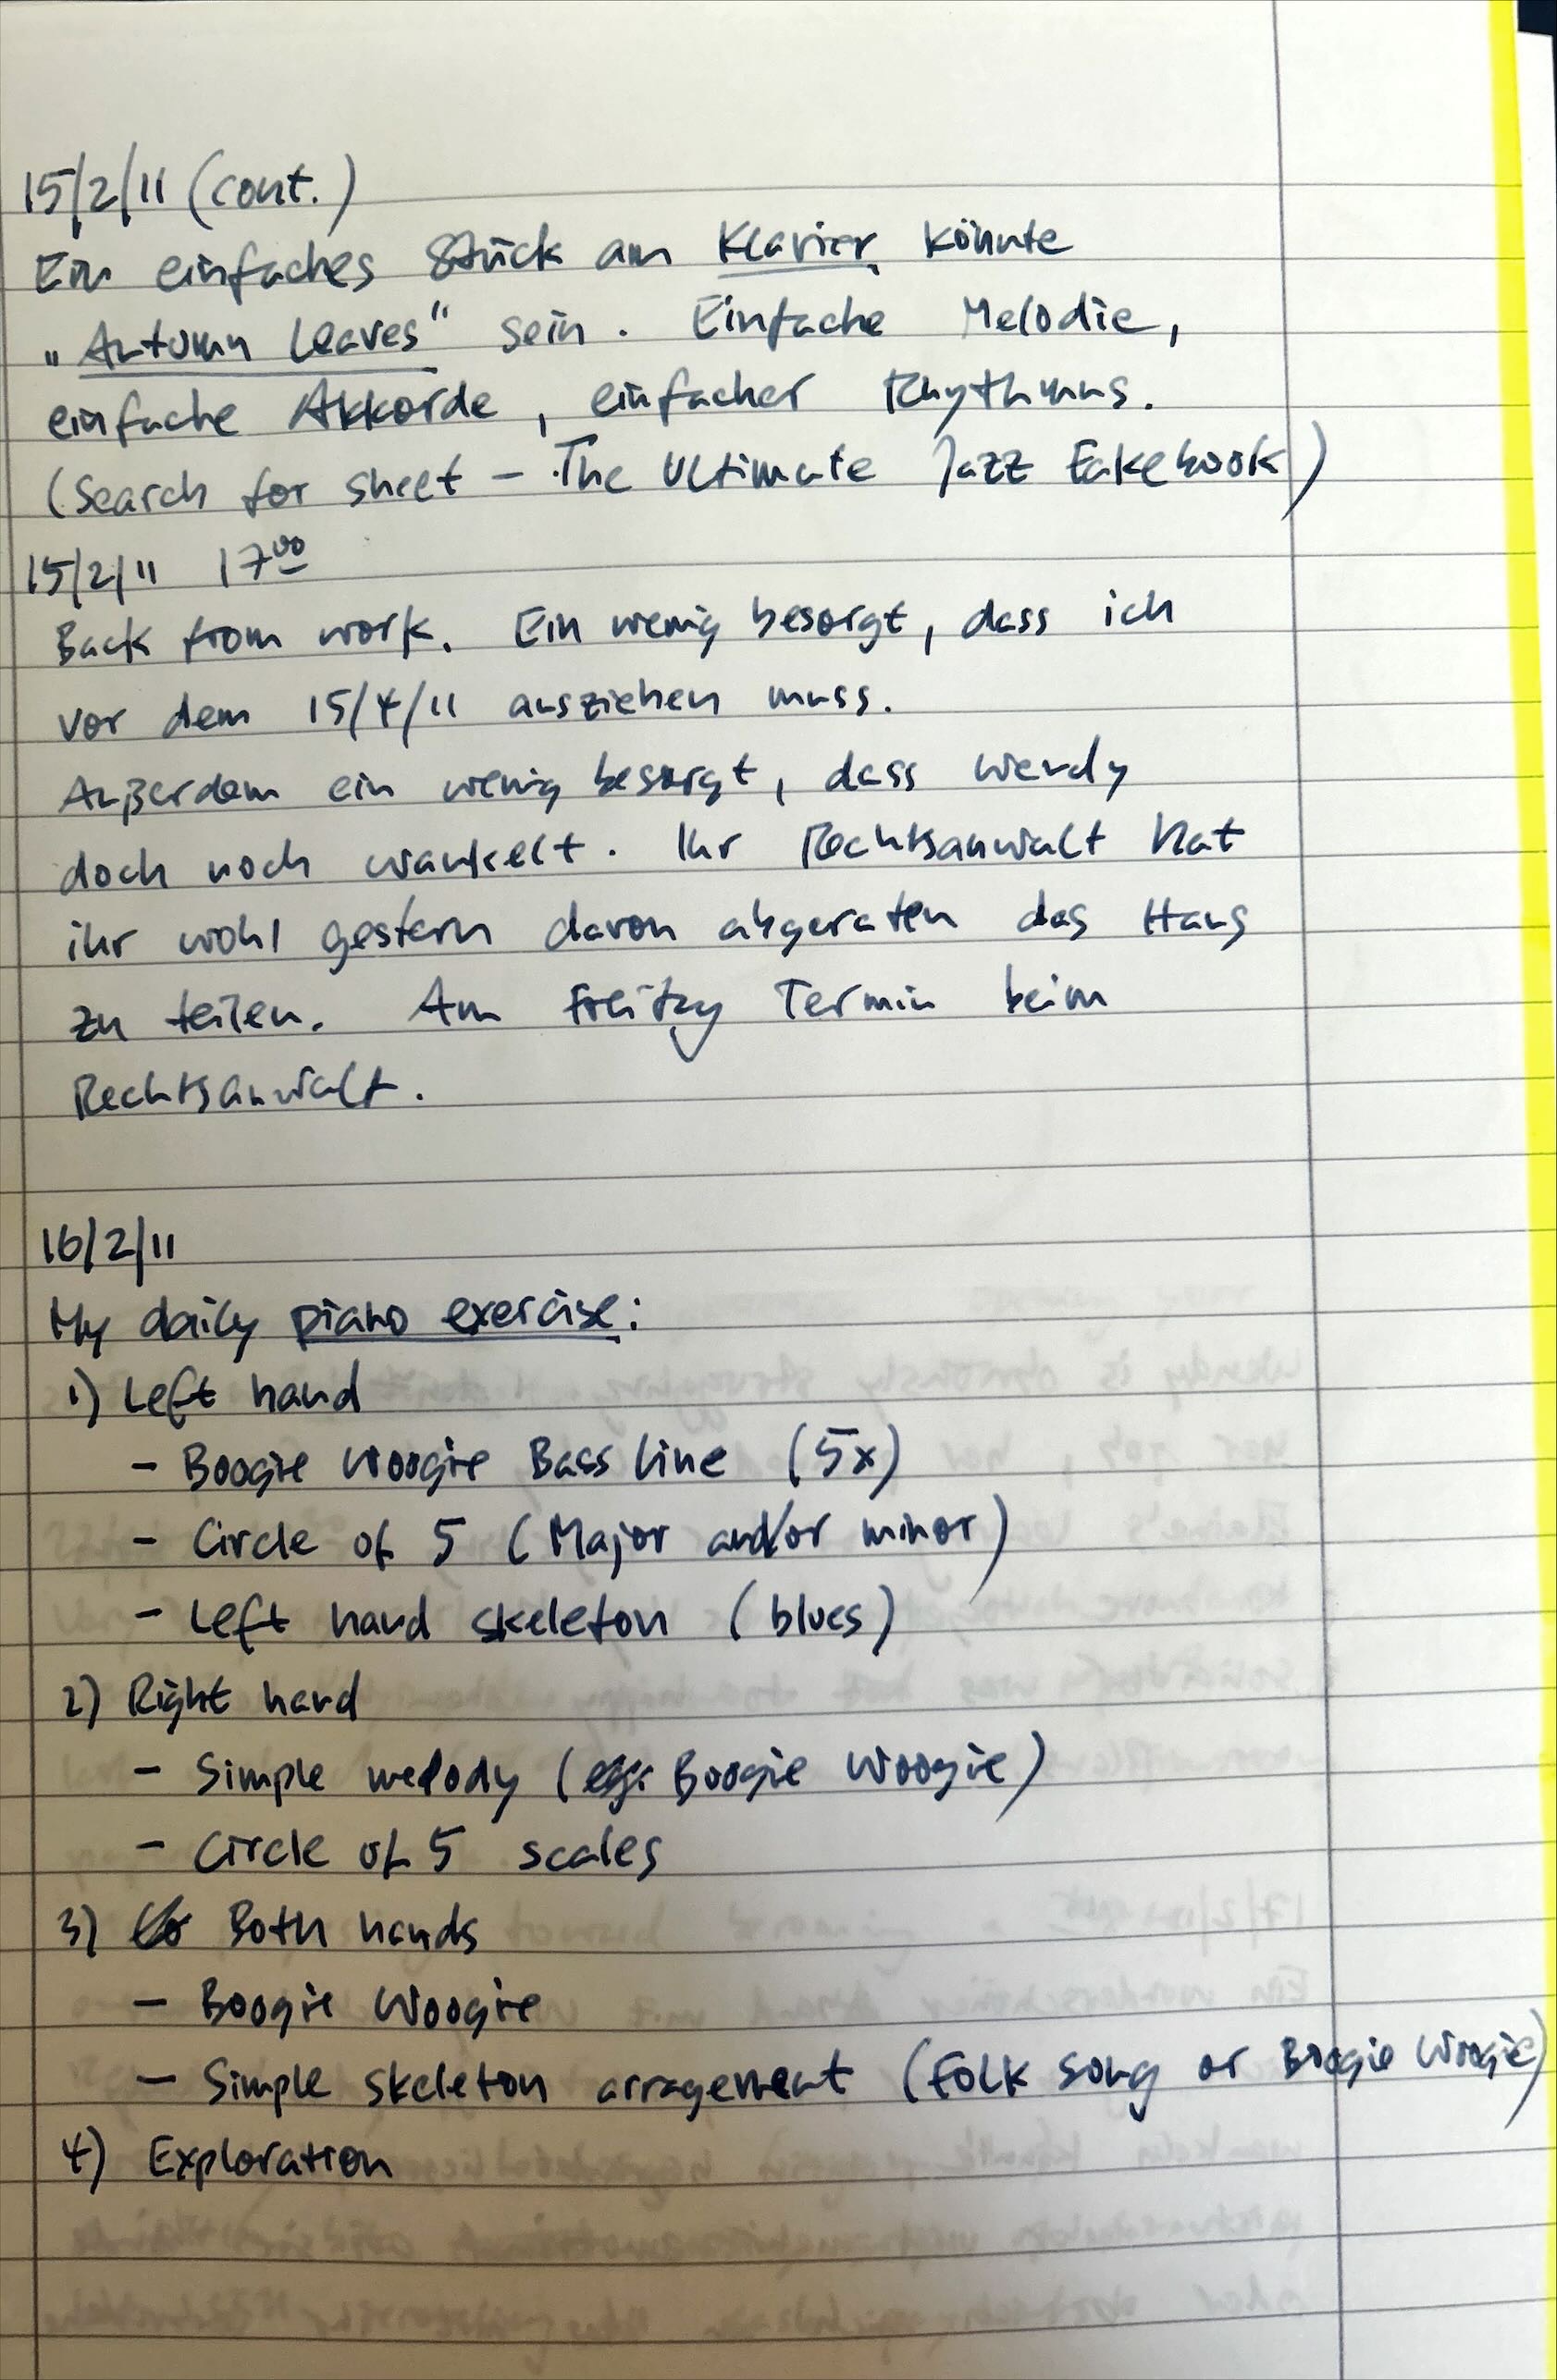 15/2/11 (cont.)
Ein einfaches Stück am Klavier könnte
„Autumn Leaves" sein. Einfache Melodie,
einfache Akkorde, einfacher Rhythmus.
(Search for sheet - The Ultimate Jazz Fakebook)
15/2/11 17⁰⁰
Back from work. Ein wenig besorgt, dass ich
vor dem 15/4/11 ausziehen muss.
Außerdem ein wenig besorgt, dass Wendy
doch noch wankelt. Ihr Rechtsanwalt hat
ihr wohl gestern davon abgeraten das Haus
zu teilen. Am Freitag Termin beim
Rechtsanwalt.
16/2/11
My daily piano exercise:
1) Left hand
- Boogie Woogie Bass line (5x)
- Circle of 5 (Major and/or minor)
- Left hand skeleton (blues)
2) Right hand
- Simple melody (eg. Boogie Woogie)
- Circle of 5 scales
3) Both hands
- Boogie Woogie
- Simple skeleton arragement (Folk Song or Boogie Woogie)
4) Exploration